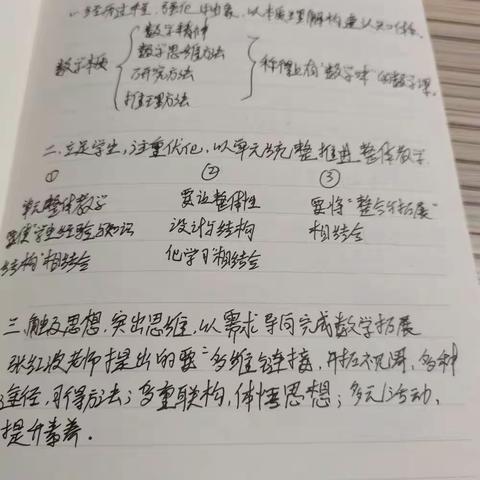 一、经历过程,强化抽象,以本质理解构建认知体系
数学本质
数学精神
数学思维方法
研究方法
推理方法
称得上有"数学味"的数学课。
二、立足学生,注重优化,以单元统整推进整体教学
① ② ③
单元整体教学 要让整体性 要将"整合与拓展"
要使"学生经验与知识 设计与结构 相结合
结构"相结合 化学习"相结合
三、触及思想,突出思维,以需求导向完成数学拓展
张红波老师提出的要"多维链接,开拓视界,多种
途径,习得方法;多重联构,体悟思想;多元活动,
提升素养。